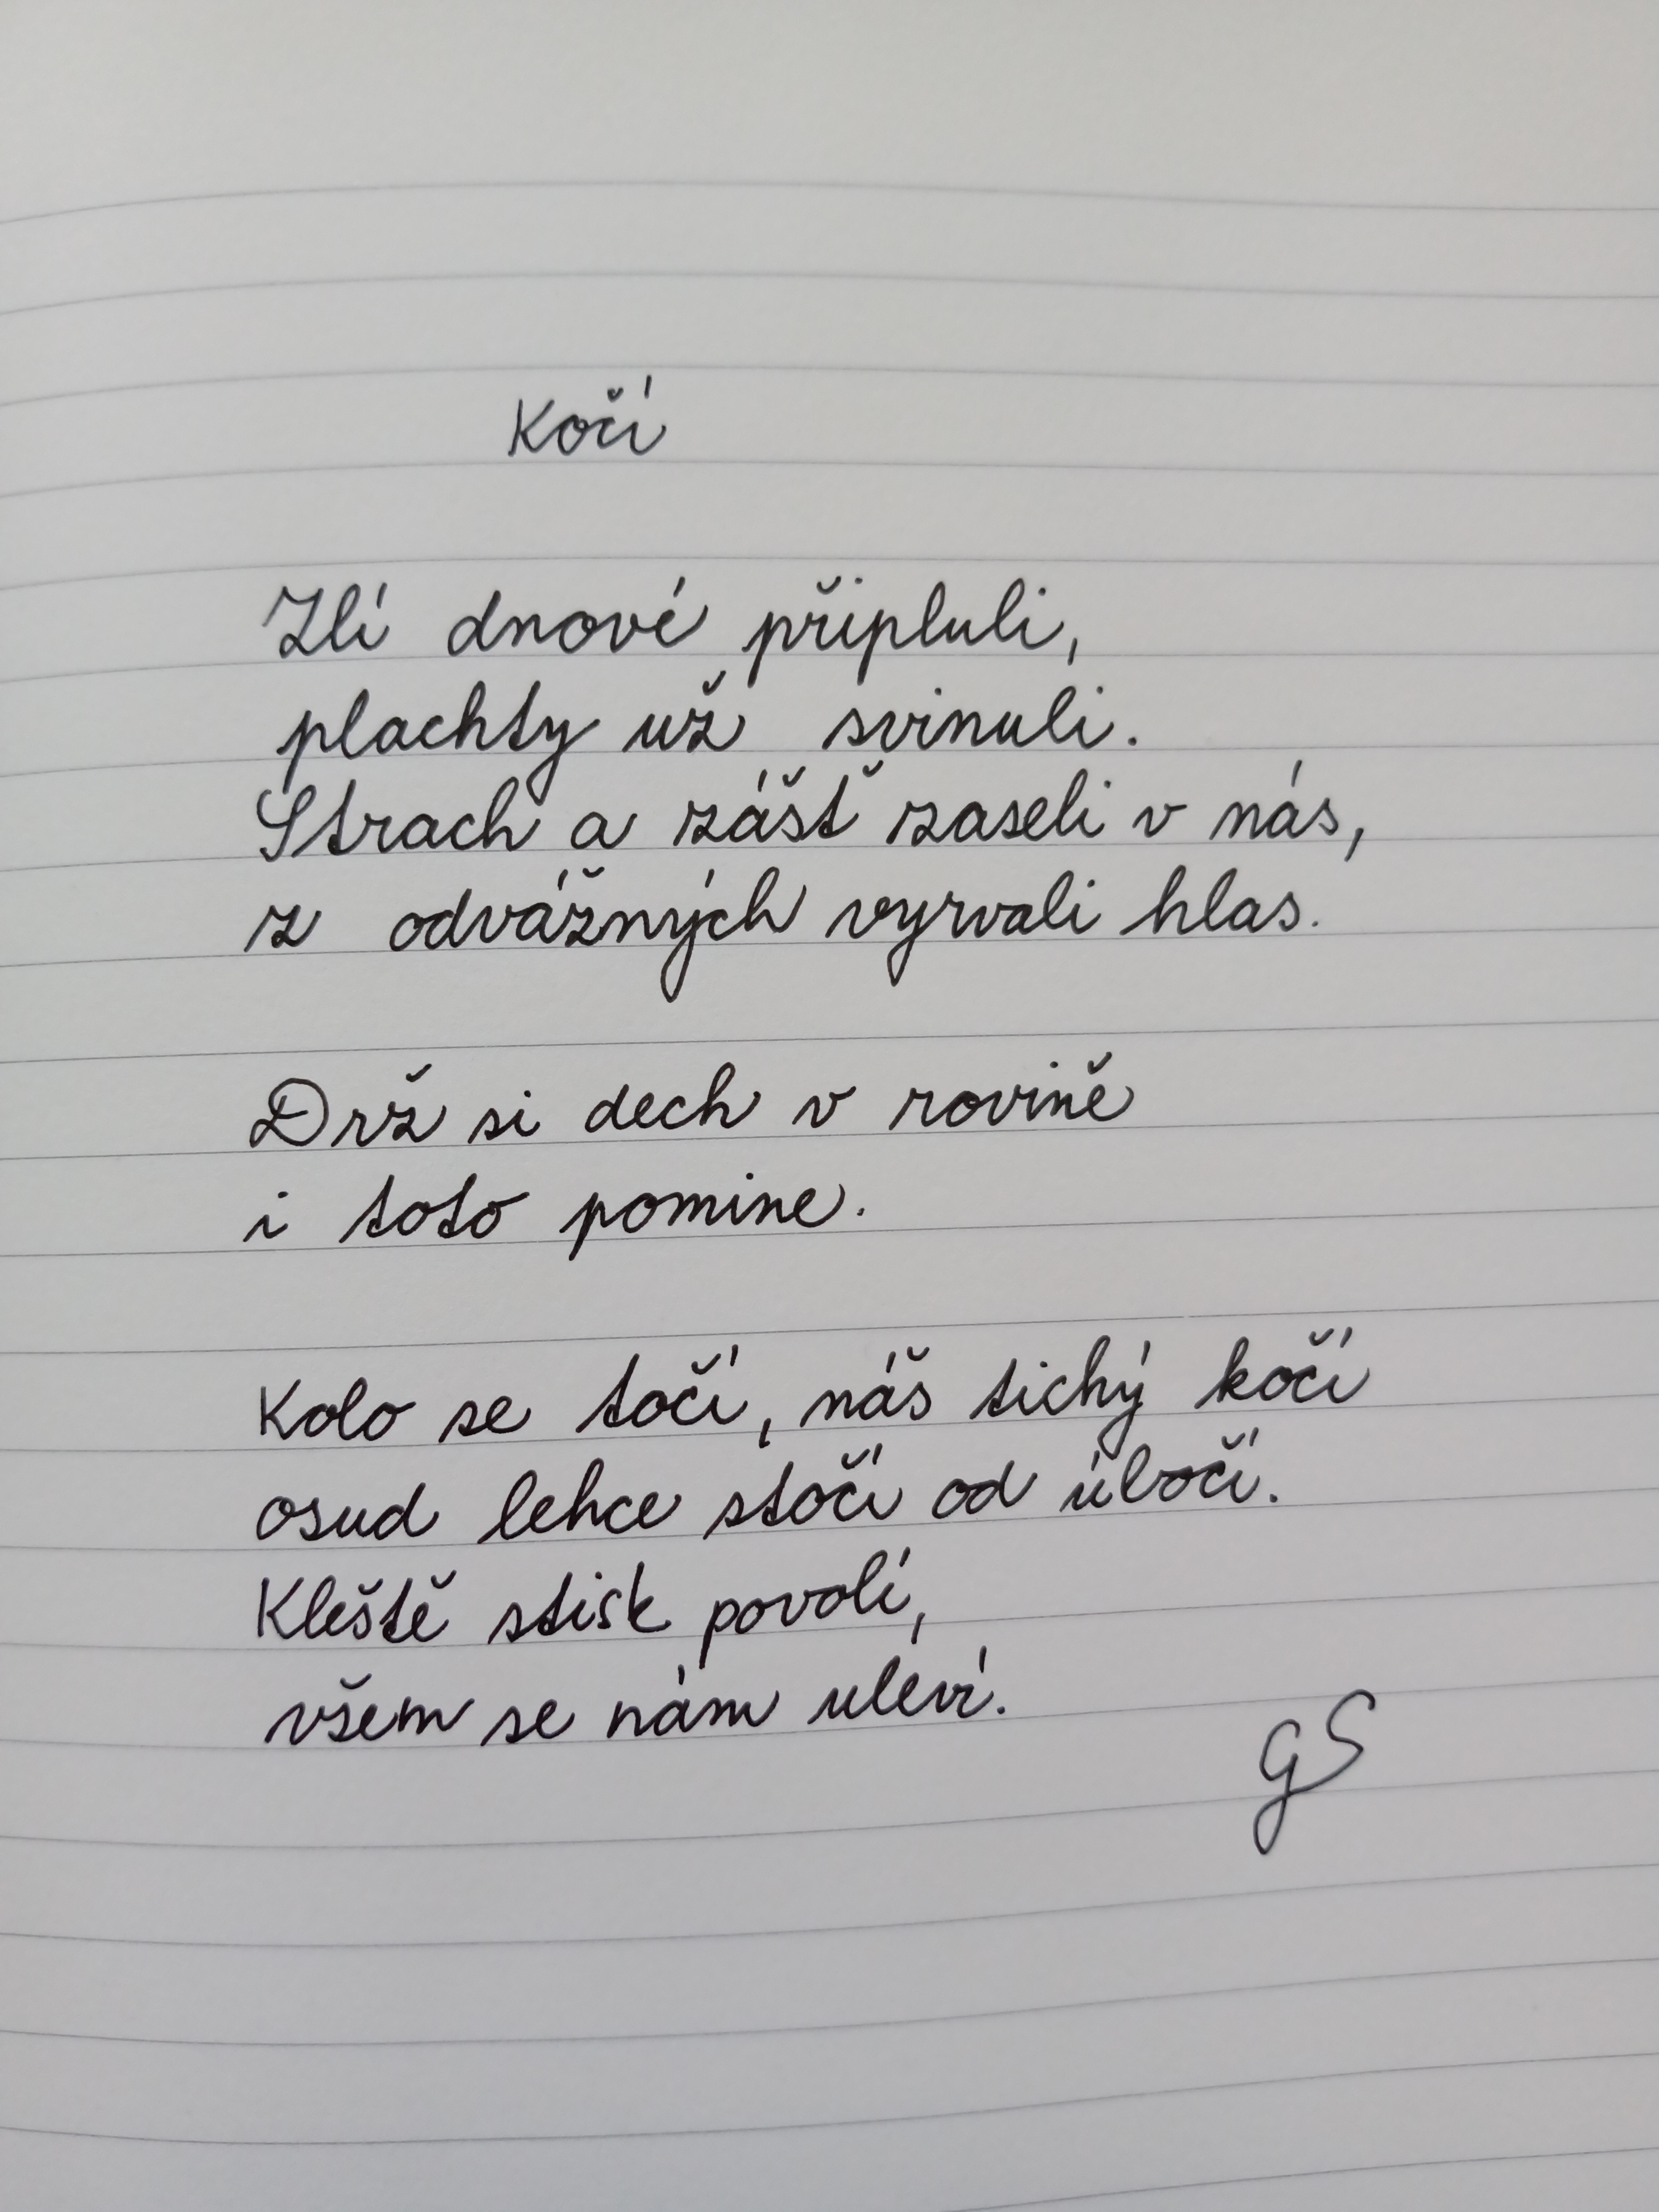 Kočí
Zlí dnové připluli,
plachty už svinuli.
Strach a zášť zaseli v nás,
z odvážných vyrvali hlas.
Drž si dech v rovině
i toto pomine.
Kolo se točí, náš tichý kočí
osud lehce stočí od úbočí.
Kleště stisk povolí,
všem se nám uleví.
GS